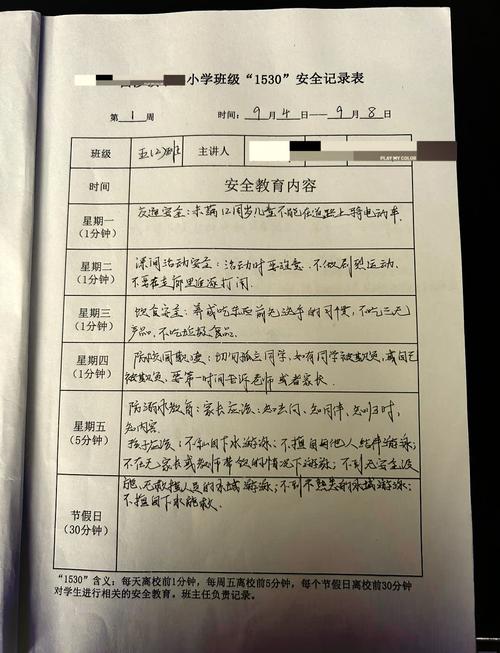 小学班级“1530”安全记录表
第 1 周 时间：9月4日——9月8日
班级 五(2)班 主讲人
PLAY MY COLOR
时间 安全教育内容
星期一
(1分钟)
交通安全：未满12周岁儿童不能在道路上骑电动车.
星期二
(1分钟)
课间活动安全：活动时要注意.不做剧烈运动、
不要在走廊里追逐打闹.
星期三
(1分钟)
饮食安全：养成吃东西前先洗手的习惯，不吃三无
产品、不吃垃圾食品.
星期四
(1分钟)
防校园欺凌：切勿孤立同学，如有同学被欺凌，或自己
被欺凌、要第一时间告诉老师或者家长.
星期五
(5分钟)
防溺水教育：家长应该：知去向、知同伴，知归时，
知内容.
孩子应该：不私自下水游泳：不擅自与他人结伴游泳；
不在无家长或教师带领的情况下游泳；不到无安全设
节假日
(30分钟)
施、无救援人员的水域游泳；不到不熟悉的水域游泳；
不擅自下水施救.
“1530”含义：每天离校前1分钟，每周五离校前5分钟，每个节假日离校前30分钟
对学生进行相关的安全教育。班主任负责记录。